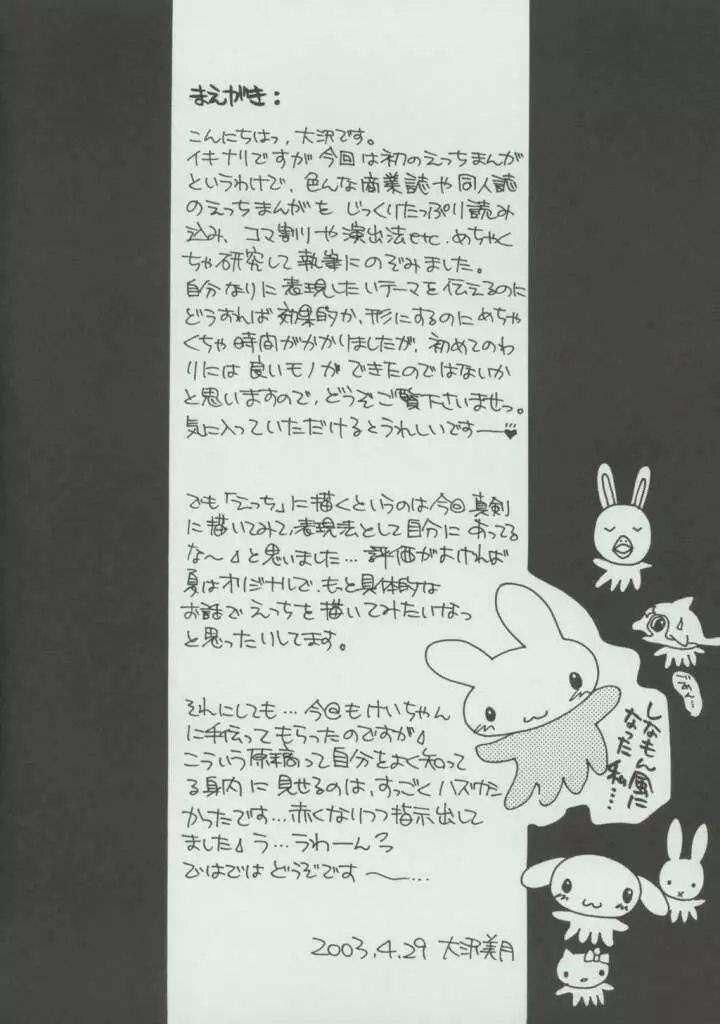 まえがき：
こんにちはっ、大沢です。
イキナリですが今回は初のえっちまんが
というわけで、色んな商業誌や同人誌
のえっちまんがを じっくりたっぷり読み
込み、コマ割りや演出法etc.めちゃく
ちゃ研究して執筆にのぞみました。
自分なりに表現したいテーマを伝えるのに
どうすれば効果的か、形にするのにめちゃ
くちゃ時間がかかりましたが、初めてのわ
りには良いモノができたのではないか
と思いますので、どうぞご覧下さいませっ。
気に入っていただけるとうれしいです──♥
でも「えっち」に描くというのは今回真剣
に描いてみて、表現法として自分にあってる
な〜♪と思いました…評価がよければ
夏はオリジナルで、もっと具体的な
お話でえっちを描いてみたいなっ
と思ったりしてます。
それにしても…今回もけいちゃん
に手伝ってもらったのですが♪
こういう原稿って自分をよく知って
る身内に見せるのは、すっごくハズカし
かったです…赤くなりつつ指示出して
ました♪う…うわーん
ではではどうぞです〜…
2003.4.29 大沢美月
ごめん…
しなもん風に
なった私…